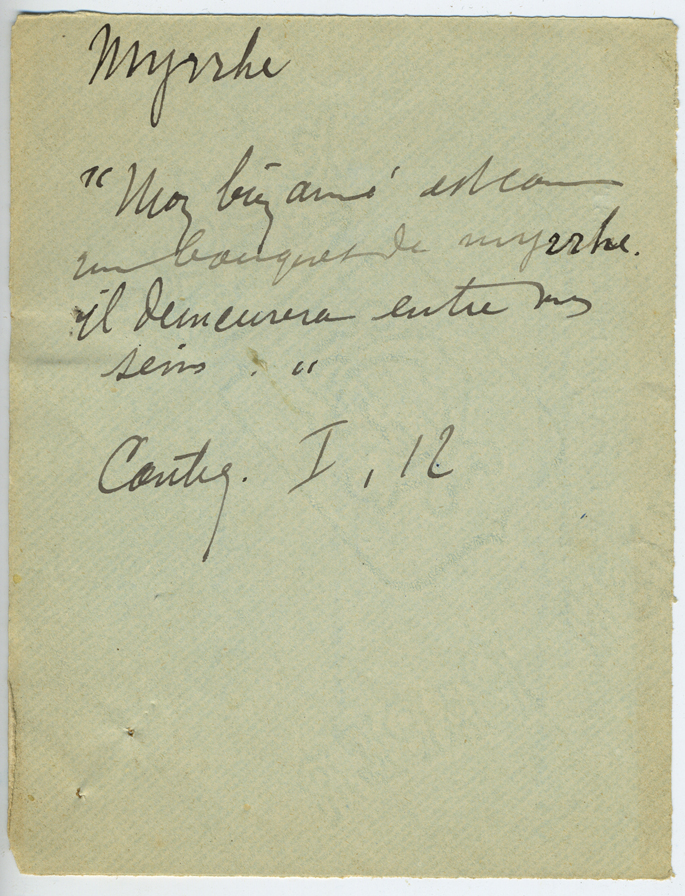 Myrrhe
"Mon bien aimé est comme
un bouquet de myrrhe.
il demeurera entre mes
seins . "
Cantiq. I, 12